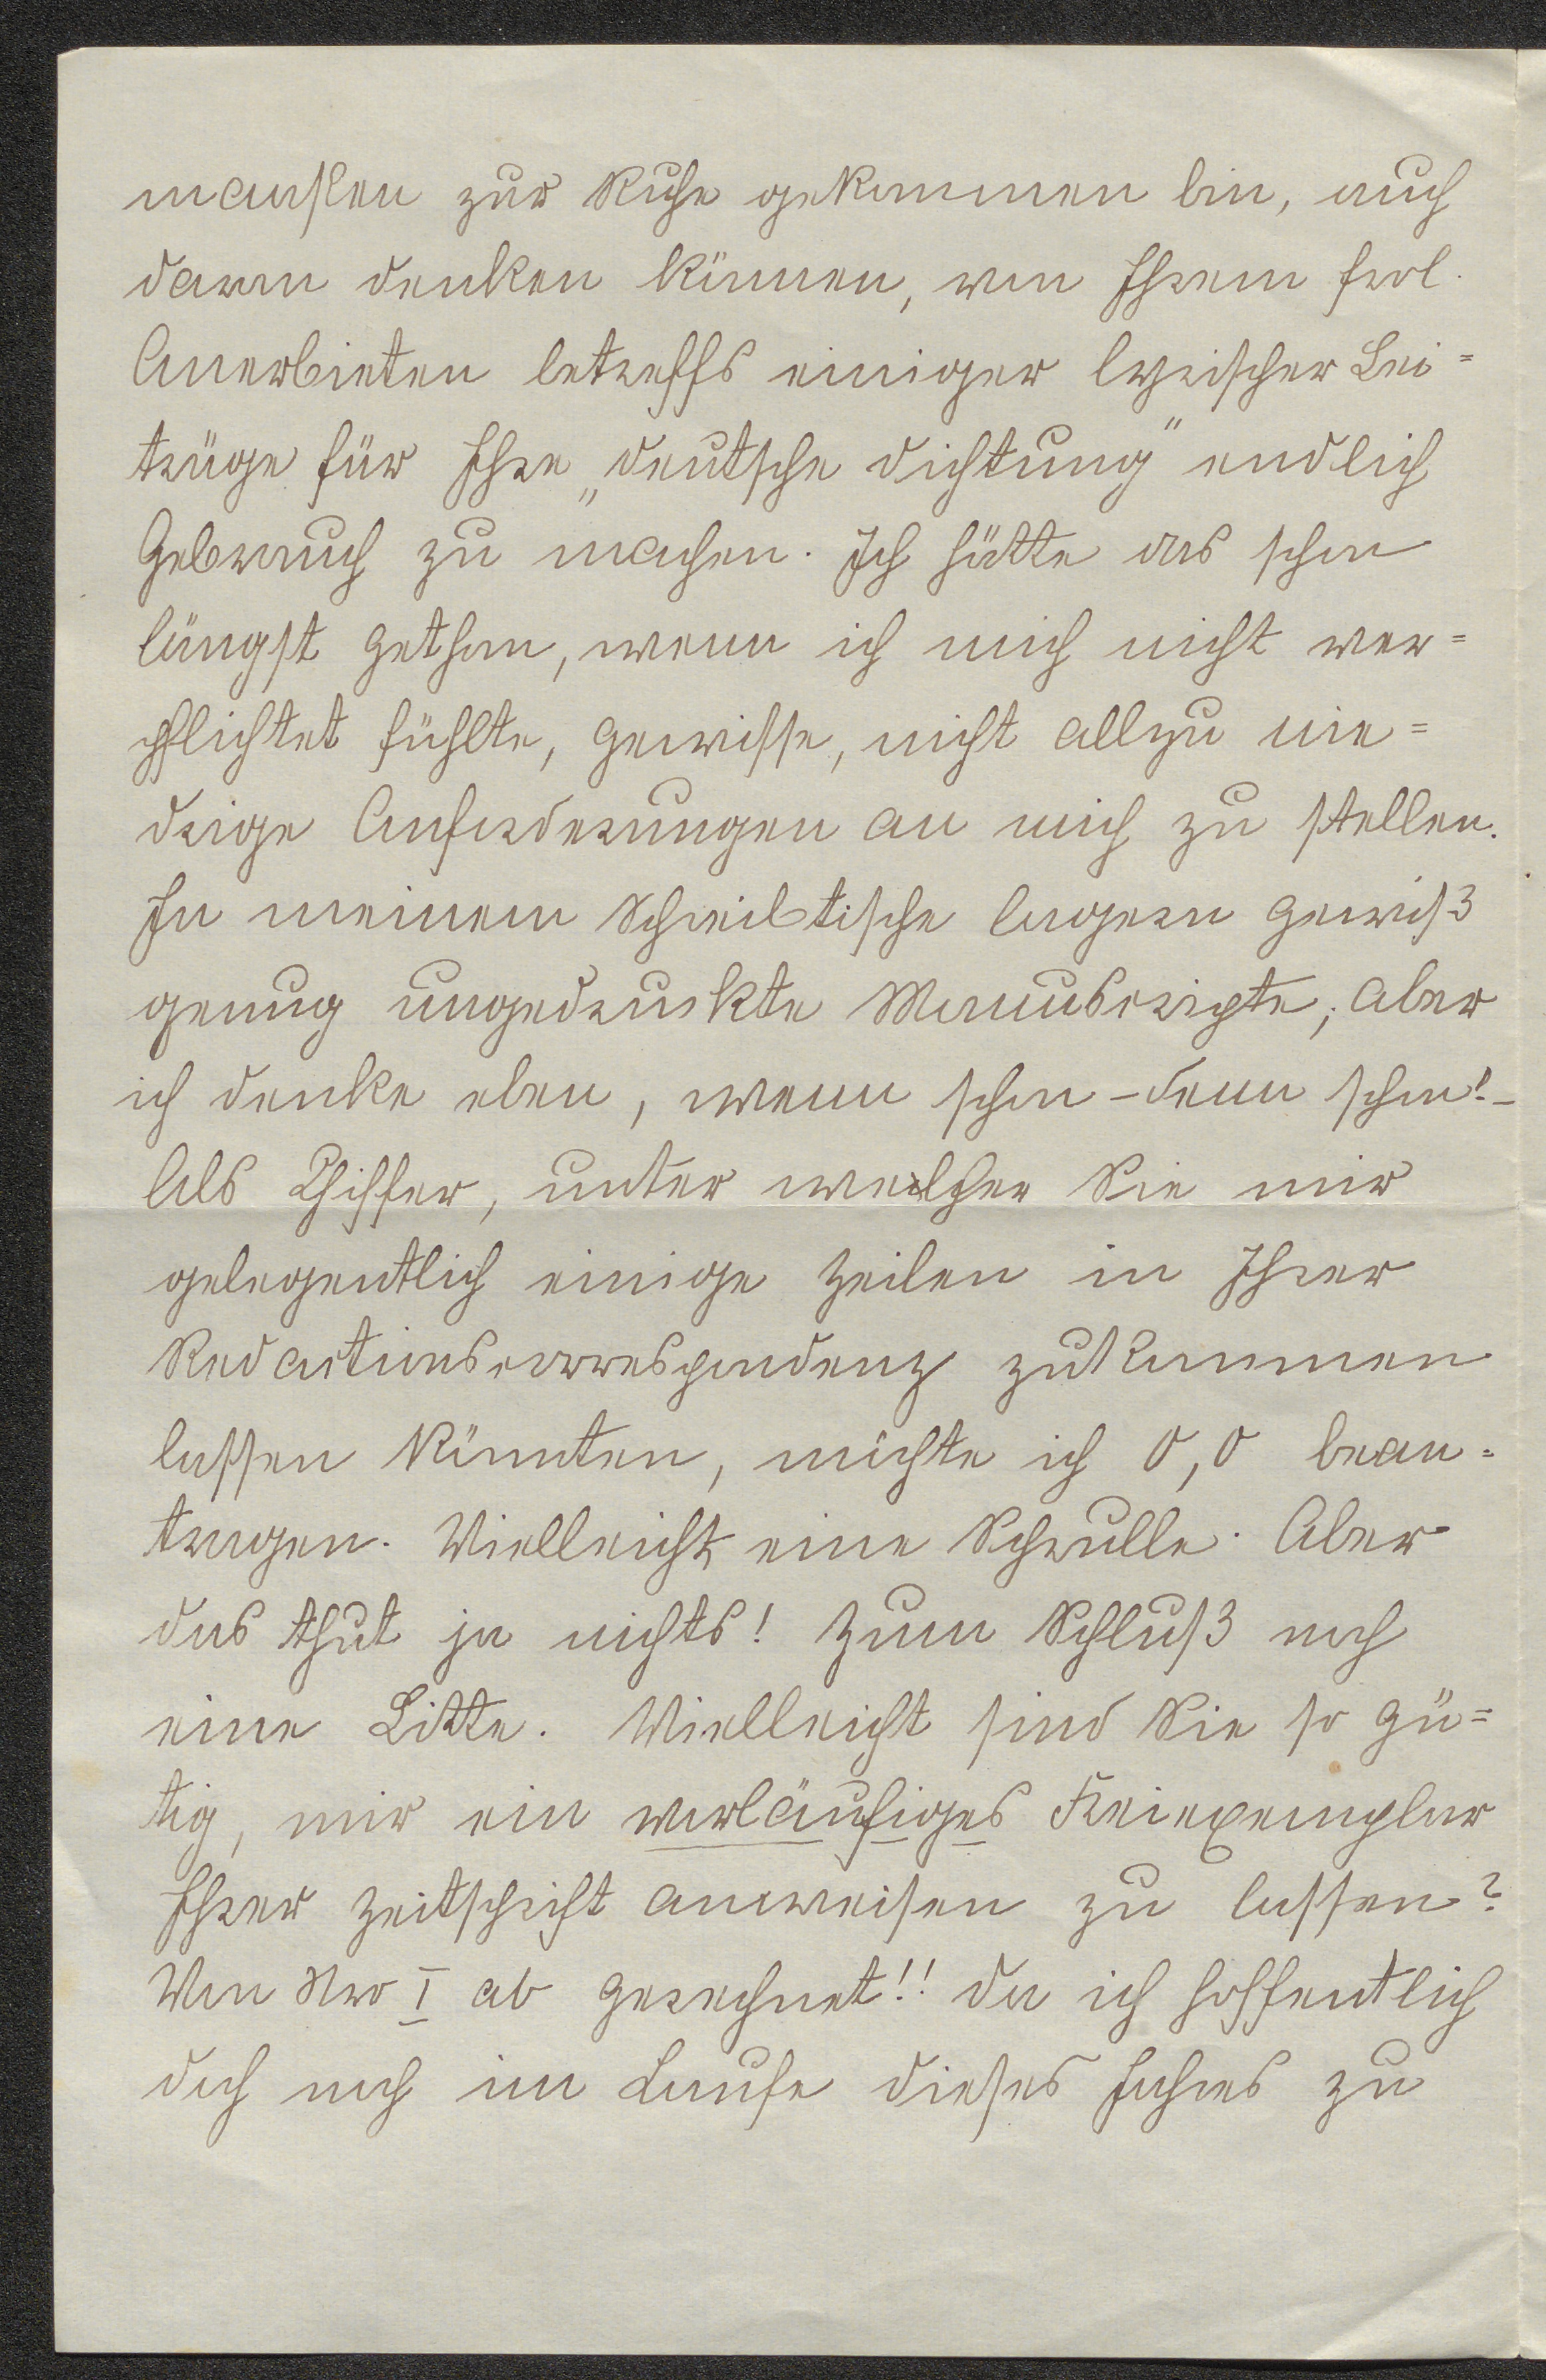 maassen zur Ruhe gekommen bin, auch
daran denken können, von Ihrem frdl.
Anerbieten betreffs einiger lyrischer Bei=
träge für Ihre „deutsche Dichtung" endlich
Gebrauch zu machen. Ich hätte das schon
längst gethan, wenn ich mich nicht ver=
pflichtet fühlte, gewisse, nicht allzu nie=
drige Anforderungen an mich zu stellen.
In meinem Schreibtische lagern gewiß
genug ungedruckte Manuscripte; aber
ich denke eben, wenn schon – denn schon! –
Als Chiffer, unter welcher Sie mir
gelegentlich einige Zeilen in Ihrer
Redactionscorrespondenz zukommen
lassen könnten, möchte ich O, O bean=
tragen. Vielleicht eine Schrulle. Aber
das thut ja nichts! Zum Schluß noch
eine Bitte. Vielleicht sind Sie so gü=
tig, mir ein vorläufiges Freiexemplar
Ihrer Zeitschrift anweisen zu lassen?
Von Nro I ab gerechnet!! Da ich hoffentlich
doch noch im Laufe dieses Jahres zu